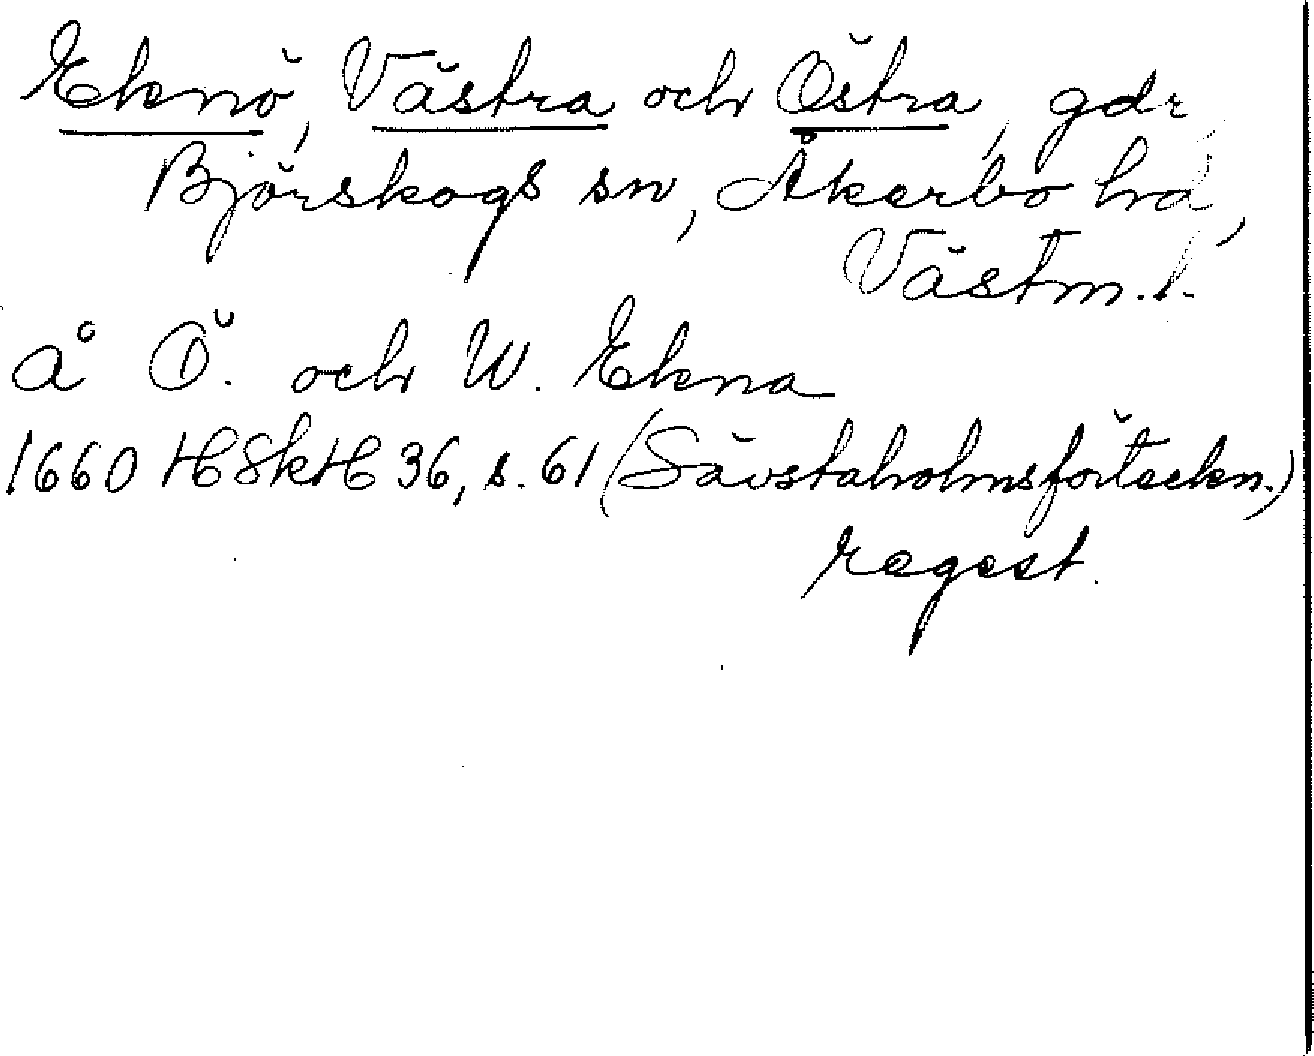 Eknö, Västra och Östra, gdr,
Björskogs sn, Åkerbo hd,
Västm.l.
å Ö. och W. Ekna
1660 HSkH 36, s. 61 (Sävstaholmsförteckn.)
regest.